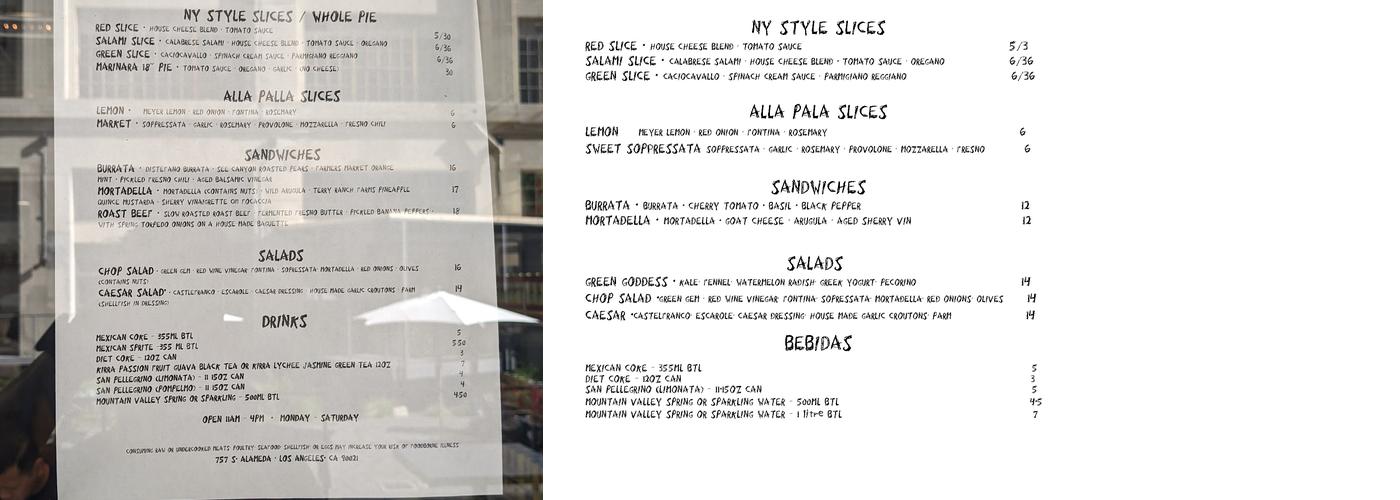 NY STYLE SLICES / WHOLE PIE
RED SLICE · HOUSE CHEESE BLEND · TOMATO SAUCE 5/30
SALAMI SLICE · CALABRESE SALAMI · HOUSE CHEESE BLEND · TOMATO SAUCE · OREGANO 6/36
GREEN SLICE · CACIOCAVALLO · SPINACH CREAM SAUCE · PARMIGIANO REGGIANO 6/36
MARINARA 18" PIE · TOMATO SAUCE · OREGANO · GARLIC · (NO CHEESE) 30
ALLA PALLA SLICES
LEMON · MEYER LEMON · RED ONION · FONTINA · ROSEMARY 6
MARKET · SOPPRESSATA · GARLIC · ROSEMARY · PROVOLONE · MOZZARELLA · FRESNO CHILI 6
SANDWICHES
BURRATA · DISTEFANO BURRATA · SEE CANYON ROASTED PEARS · FARMERS MARKET ORANGE 16
MINT · PICKLED FRESNO CHILI · AGED BALSAMIC VINEGAR
MORTADELLA · MORTADELLA (CONTAINS NUTS) · WILD ARUGULA · TERRY RANCH FARMS PINEAPPLE 17
QUINCE MUSTARDA · SHERRY VINAIGRETTE ON FOCACCIA
ROAST BEEF · SLOW ROASTED ROAST BEEF · FERMENTED FRESNO BUTTER · PICKLED BANANA PEPPERS · 18
WITH SPRING TORPEDO ONIONS ON A HOUSE MADE BAGUETTE
SALADS
CHOP SALAD · GREEN GEM · RED WINE VINEGAR· FONTINA · SOPRESSATA· MORTADELLA · RED ONIONS · OLIVES 16
(CONTAINS NUTS)
CAESAR SALAD* · CASTELFRANCO · ESCAROLE · CAESAR DRESSING · HOUSE MADE GARLIC CROUTONS · PARM 14
(SHELLFISH IN DRESSING)
DRINKS
MEXICAN COKE - 355ML BTL 5
MEXICAN SPRITE -355 ML BTL 5.50
DIET COKE - 12OZ CAN 3
KIRRA PASSION FRUIT GUAVA BLACK TEA OR KIRRA LYCHEE JASMINE GREEN TEA 12OZ 7
SAN PELLEGRINO (LIMONATA) - 11.15OZ CAN 4
SAN PELLEGRINO (POMPELMO) - 11.15OZ CAN 4
MOUNTAIN VALLEY SPRING OR SPARKLING - 500ML BTL 4.50
OPEN 11AM - 4PM · MONDAY - SATURDAY
CONSUMING RAW OR UNDERCOOKED MEATS· POULTRY· SEAFOOD· SHELLFISH· OR EGGS MAY INCREASE YOUR RISK OF FOODBORNE ILLNESS
757 S. ALAMEDA · LOS ANGELES· CA 90021
NY STYLE SLICES
RED SLICE · HOUSE CHEESE BLEND · TOMATO SAUCE 5/3
SALAMI SLICE · CALABRESE SALAMI · HOUSE CHEESE BLEND · TOMATO SAUCE · OREGANO 6/36
GREEN SLICE · CACIOCAVALLO · SPINACH CREAM SAUCE · PARMIGIANO REGGIANO 6/36
ALLA PALA SLICES
LEMON MEYER LEMON · RED ONION · FONTINA · ROSEMARY 6
SWEET SOPPRESSATA SOPPRESSATA · GARLIC · ROSEMARY · PROVOLONE · MOZZARELLA · FRESNO 6
SANDWICHES
BURRATA · BURRATA · CHERRY TOMATO · BASIL · BLACK PEPPER 12
MORTADELLA · MORTADELLA · GOAT CHEESE · ARUGULA · AGED SHERRY VIN 12
SALADS
GREEN GODDESS · KALE· FENNEL· WATERMELON RADISH· GREEK YOGURT· PECORINO 14
CHOP SALAD ·GREEN GEM · RED WINE VINEGAR· FONTINA· SOPRESSATA· MORTADELLA· RED ONIONS· OLIVES 14
CAESAR ·CASTELFRANCO· ESCAROLE· CAESAR DRESSING· HOUSE MADE GARLIC CROUTONS· PARM 14
BEBIDAS
MEXICAN COKE - 355ML BTL 5
DIET COKE - 12OZ CAN 3
SAN PELLEGRINO (LIMONATA) - 11.15OZ CAN 5
MOUNTAIN VALLEY SPRING OR SPARKLING WATER - 500ML BTL 4.5
MOUNTAIN VALLEY SPRING OR SPARKLING WATER - 1 litre BTL 7